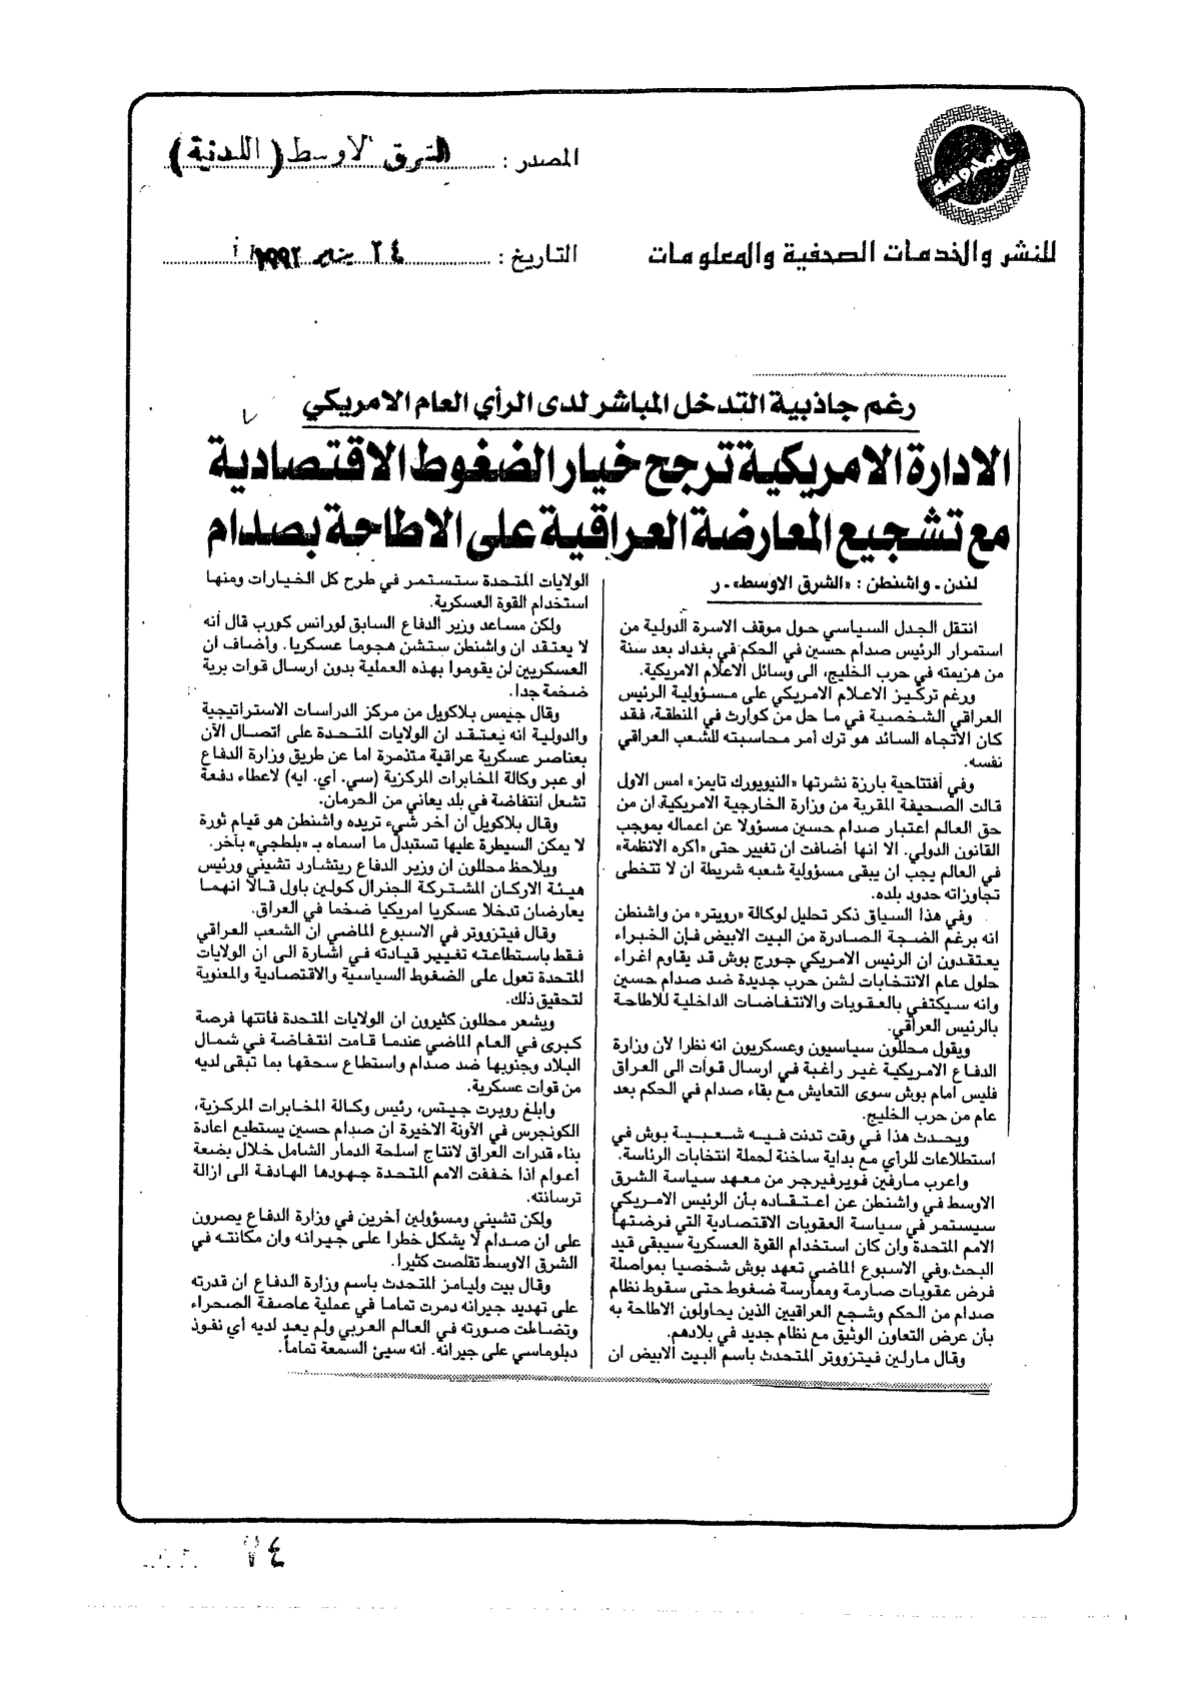 المصدر : الشرق الاوسط (اللندنية)
للنشر والخدمات الصحفية والمعلومات
التاريخ : ٢٤ يناير ١٩٩٢
رغم جاذبية التدخل المباشر لدى الرأي العام الامريكي
الادارة الامريكية ترجح خيار الضغوط الاقتصادية
مع تشجيع المعارضة العراقية على الاطاحة بصدام
لندن - واشنطن : «الشرق الاوسط» - ر
انتقل الجدل السياسي حول موقف الاسرة الدولية من
استمرار الرئيس صدام حسين في الحكم في بغداد بعد سنة
من هزيمته في حرب الخليج، الى وسائل الاعلام الامريكية.
ورغم تركيز الاعلام الامريكي على مسؤولية الرئيس
العراقي الشخصية في ما حل من كوارث في المنطقة، فقد
كان الاتجاه السائد هو ترك أمر محاسبته للشعب العراقي
نفسه.
وفي أفتتاحية بارزة نشرتها «النيويورك تايمز» امس الاول
قالت الصحيفة المقربة من وزارة الخارجية الامريكية ان من
حق العالم اعتبار صدام حسين مسؤولا عن اعماله بموجب
القانون الدولي. الا انها اضافت ان تغيير حتى «أكره الانظمة»
في العالم يجب ان يبقى مسؤولية شعبه شريطة ان لا تتخطى
تجاوزاته حدود بلده.
وفي هذا السياق ذكر تحليل لوكالة «رويتر» من واشنطن
انه برغم الضجة الصادرة من البيت الابيض فإن الخبراء
يعتقدون ان الرئيس الامريكي جورج بوش قد يقاوم اغراء
حلول عام الانتخابات لشن حرب جديدة ضد صدام حسين
وانه سيكتفي بالعقوبات والانتفاضات الداخلية للاطاحة
بالرئيس العراقي.
ويقول محللون سياسيون وعسكريون انه نظرا لأن وزارة
الدفاع الامريكية غير راغبة في ارسال قوات الى العراق
فليس امام بوش سوى التعايش مع بقاء صدام في الحكم بعد
عام من حرب الخليج.
ويحدث هذا في وقت تدنت فيه شعبية بوش في
استطلاعات للرأي مع بداية ساخنة لحملة انتخابات الرئاسة.
واعرب مارفين فويرفيرجر من معهد سياسة الشرق
الاوسط في واشنطن عن اعتقاده بأن الرئيس الامريكي
سيستمر في سياسة العقوبات الاقتصادية التي فرضتها
الامم المتحدة وان كان استخدام القوة العسكرية سيبقى قيد
البحث.وفي الاسبوع الماضي تعهد بوش شخصيا بمواصلة
فرض عقوبات صارمة وممارسة ضغوط حتى سقوط نظام
صدام من الحكم وشجع العراقيين الذين يحاولون الاطاحة به
بأن عرض التعاون الوثيق مع نظام جديد في بلادهم.
وقال مارلين فيتزووتر المتحدث باسم البيت الابيض ان
الولايات المتحدة ستستمر في طرح كل الخيارات ومنها
استخدام القوة العسكرية.
ولكن مساعد وزير الدفاع السابق لورانس كورب قال أنه
لا يعتقد ان واشنطن ستشن هجوما عسكريا. وأضاف ان
العسكريين لن يقوموا بهذه العملية بدون ارسال قوات برية
ضخمة جدا.
وقال جيمس بلاكويل من مركز الدراسات الاستراتيجية
والدولية انه يعتقد ان الولايات المتحدة على اتصال الآن
بعناصر عسكرية عراقية متذمرة اما عن طريق وزارة الدفاع
او عبر وكالة المخابرات المركزية (سي. اي. ايه) لاعطاء دفعة
تشعل انتفاضة في بلد يعاني من الحرمان.
وقال بلاكويل ان اخر شيء تريده واشنطن هو قيام ثورة
لا يمكن السيطرة عليها تستبدل ما اسماه بـ «بلطجي» بآخر.
ويلاحظ محللون ان وزير الدفاع ريتشارد تشيني ورئيس
هيئة الاركان المشتركة الجنرال كولين باول قالا انهما
يعارضان تدخلا عسكريا امريكيا ضخما في العراق.
وقال فيتزووتر في الاسبوع الماضي ان الشعب العراقي
فقط باستطاعته تغيير قيادته في اشارة الى ان الولايات
المتحدة تعول على الضغوط السياسية والاقتصادية والمعنوية
لتحقيق ذلك.
ويشعر محللون كثيرون ان الولايات المتحدة فاتتها فرصة
كبرى في العام الماضي عندما قامت انتفاضة في شمال
البلاد وجنوبها ضد صدام واستطاع سحقها بما تبقى لديه
من قوات عسكرية.
وابلغ روبرت جيتس، رئيس وكالة المخابرات المركزية،
الكونجرس في الآونة الاخيرة ان صدام حسين يستطيع اعادة
بناء قدرات العراق لانتاج اسلحة الدمار الشامل خلال بضعة
اعوام اذا خففت الامم المتحدة جهودها الهادفة الى ازالة
ترسانته.
ولكن تشيني ومسؤولين آخرين في وزارة الدفاع يصرون
على ان صدام لا يشكل خطرا على جيرانه وان مكانته في
الشرق الاوسط تقلصت كثيرا.
وقال بيت وليامز المتحدث باسم وزارة الدفاع ان قدرته
على تهديد جيرانه دمرت تماما في عملية عاصفة الصحراء
وتضاءلت صورته في العالم العربي ولم يعد لديه أي نفوذ
دبلوماسي على جيرانه. انه سيئ السمعة تماماً.
٧٤